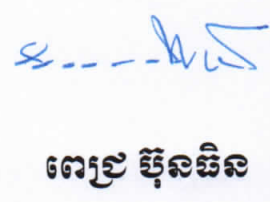 ពេជ្រ ប៊ុនធិន